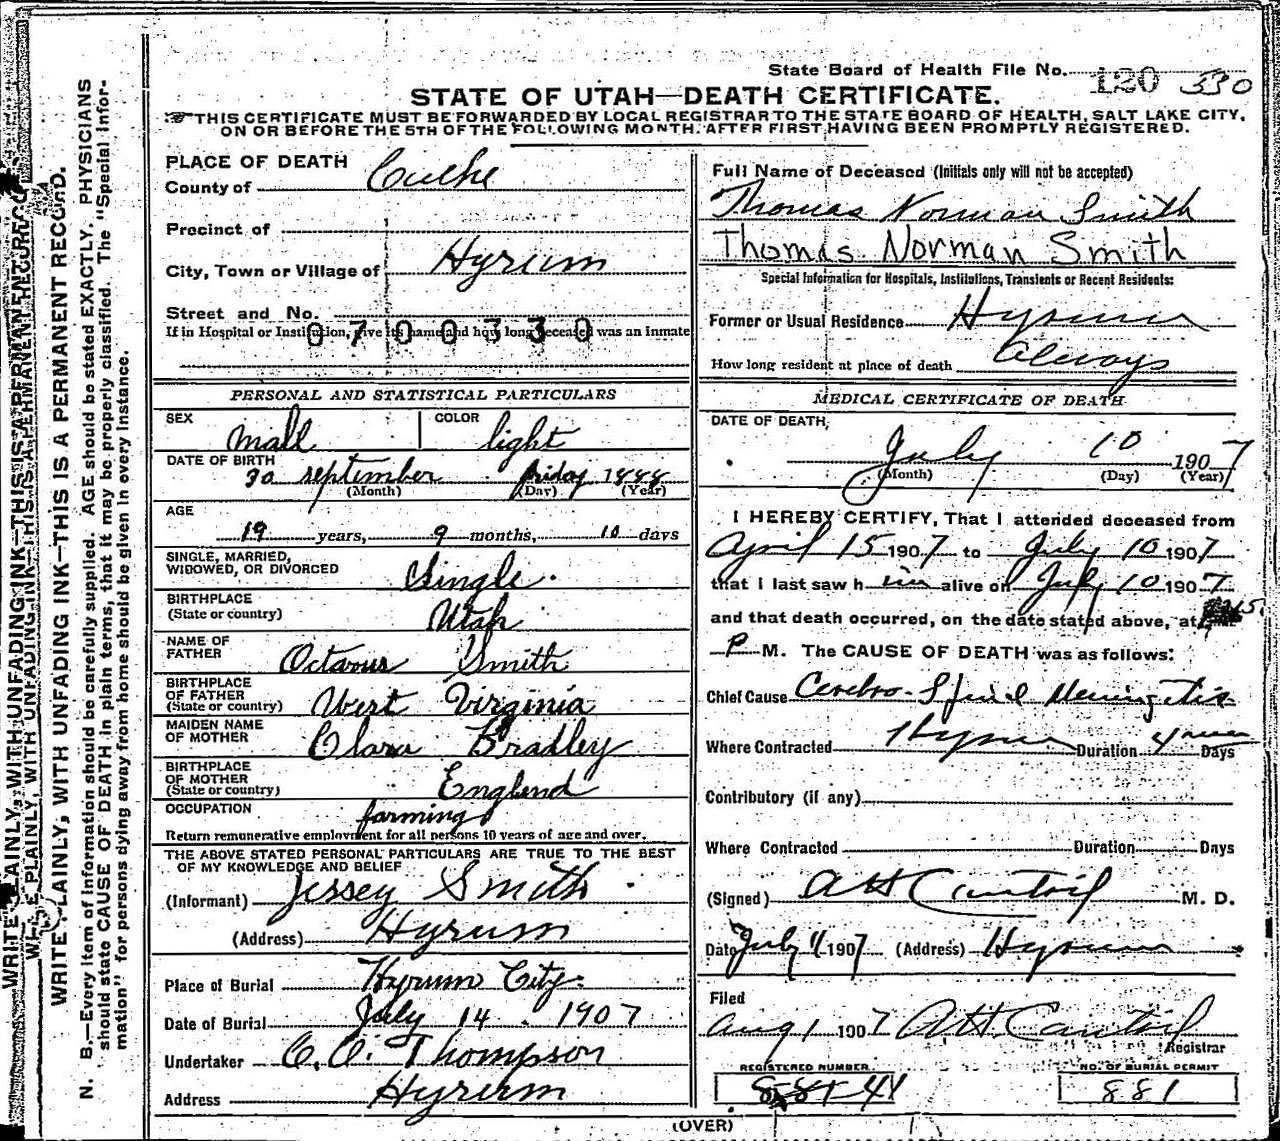 State Board of Health File No. 120 330
STATE OF UTAH—DEATH CERTIFICATE.
THIS CERTIFICATE MUST BE FORWARDED BY LOCAL REGISTRAR TO THE STATE BOARD OF HEALTH, SALT LAKE CITY,
ON OR BEFORE THE 5TH OF THE FOLLOWING MONTH. AFTER FIRST HAVING BEEN PROMPTLY REGISTERED.
WRITE PLAINLY, WITH UNFADING INK—THIS IS A PERMANENT RECORD.
N. B.—Every item of information should be carefully supplied. AGE should be stated EXACTLY. PHYSICIANS
should state CAUSE OF DEATH in plain terms, that it may be properly classified. The "Special Infor-
mation" for persons dying away from home should be given in every instance.
PLACE OF DEATH
County of Cache
Precinct of
City, Town or Village of Hyrum
Street and No.
If in Hospital or Institution, give its name and how long deceased was an inmate
0700330
PERSONAL AND STATISTICAL PARTICULARS
SEX Mall COLOR light
DATE OF BIRTH
30 september friday 1888
(Month) (Day) (Year)
AGE
19 years, 9 months, 10 days
SINGLE, MARRIED,
WIDOWED, OR DIVORCED Single.
BIRTHPLACE
(State or country) Utah
NAME OF
FATHER Octavus Smith
BIRTHPLACE
OF FATHER
(State or country) West Virginia
MAIDEN NAME
OF MOTHER Clara Bradley
BIRTHPLACE
OF MOTHER
(State or country) Englend
OCCUPATION farming
Return remunerative employment for all persons 10 years of age and over.
THE ABOVE STATED PERSONAL PARTICULARS ARE TRUE TO THE BEST
OF MY KNOWLEDGE AND BELIEF
(Informant) Jessey Smith
(Address) Hyrum
Place of Burial Hyrum City
Date of Burial July 14. 1907
Undertaker C. O. Thompson
Address Hyrum
Full Name of Deceased (Initials only will not be accepted)
Thomas Norman Smith
Thomas Norman Smith
Special Information for Hospitals, Institutions, Transients or Recent Residents:
Former or Usual Residence Hyrum
How long resident at place of death Always
MEDICAL CERTIFICATE OF DEATH
DATE OF DEATH,
July 10 1907
(Month) (Day) (Year)
I HEREBY CERTIFY, That I attended deceased from
April 15 1907 to July 10 1907
that I last saw h im alive on July 10 1907
and that death occurred, on the date stated above, at
P M. The CAUSE OF DEATH was as follows:
Chief Cause Cerebro-Spinal Meningitis
Where Contracted Hyrum Duration Days
Contributory (if any)
Where Contracted Duration Days
(Signed) M. D.
Date July 11 1907 (Address) Hyrum
Filed
Aug 1 1907
Registrar
REGISTERED NUMBER. 44
NO. OF BURIAL PERMIT 881
(OVER)